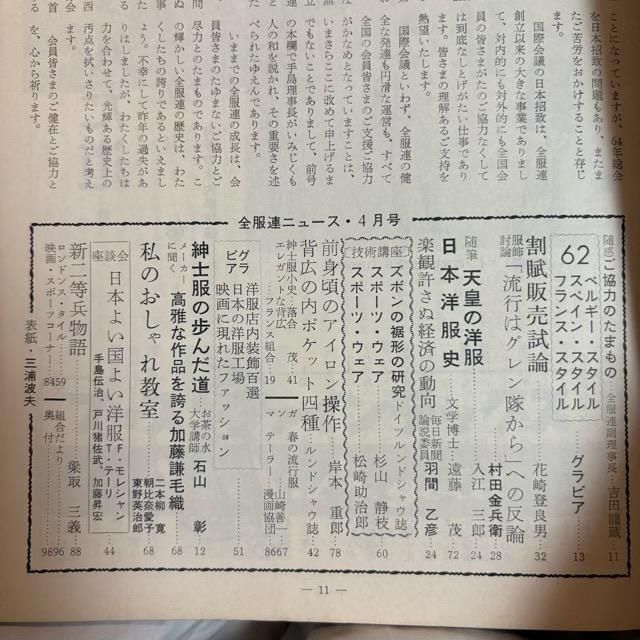 こととなっていますが、64年総会
を日本招致の問題もあり、またま
たご苦労をおかけすることと存じ
ます。
国際会議の日本招致は、全服連
創立以来の大きな事業でありまし
て、対内的にも対外的にも全国会
員の皆さまがたのご協力なくして
は到底なしとげがたい仕事であり
ます。皆さまの理解あるご支持を
熱望いたします。
国際会議といわず、全服連の健
全な発達も円滑な運営も、すべて
全国の会員皆さまのご支援ご協力
がかなめとなっていますことは、
いまさらここに改めて申上げるま
でもないことでありまして、前号
の本欄で手島理事長がいみじくも
人の和を説かれ、その重要さを述
べられたゆえんであります。
いままでの全服連の成長は、会
員皆さまのたゆまないご協力とご
尽力とのたまものであります。こ
の輝かしい全服連の歴史は、わた
くしたちの誇りであるといえまし
ょう。不幸にして昨年の過失があ
りはしましたが、わたくしたちは
力を合わせて、光輝ある歴史上の
汚点を拭いさりたいものだと考え
ます。
会員皆さまのご健在とご協力と
を、心から祈ります。
全服連ニュース・4月号
随感 ご協力のたまもの 全服連副理事長・吉田龍蔵 11
62 ベルギー・スタイル スペイン・スタイル フランス・スタイル グラビア 13
割賦販売試論 花崎登良男 32
服飾討論 「流行はグレン隊から」への反論 村田金兵衛 28
随筆 天皇の洋服 入江三郎 24
日本洋服史 文学博士・遠藤茂 72
楽観許さぬ経済の動向 毎日新聞論説委員 羽間乙彦 24
技術講座
ズボンの裾形の研究 ドイツルンドシャウ誌
スポーツ・ウェア 杉山静枝 60
スポーツ・ウェア 松崎助治郎
前身頃のアイロン操作 岸本重郎 78
背広の内ポケット四種 ルンドシャウ誌 42
紳士服小史…落合茂 41
エレガントな背広 フランス組合 19
ガ 春の流行服 山崎善一 67
マ テーラー 漫画協団 86
グラビア
洋服店内装飾百選
日本の洋服工場
映画に現れたファッション 51
紳士服の歩んだ道 お茶の水大学講師 石山彰 12
メーカーに聞く 高雅な作品を誇る加藤謙毛織 68
私のおしゃれ教室 二本柳寛 朝比奈愛子 東野英治郎 68
座談会 日本よい国よい洋服 F・モレシャン T・テーリ 手島伝治、戸川猪佐武、加藤昇宏 44
新二等兵物語 梁取三義 88
ロンドンス・タイル 59
映画・スポーツコーナー 84
組合だより 96
奥付 98
表紙・三浦波夫
— 11 —